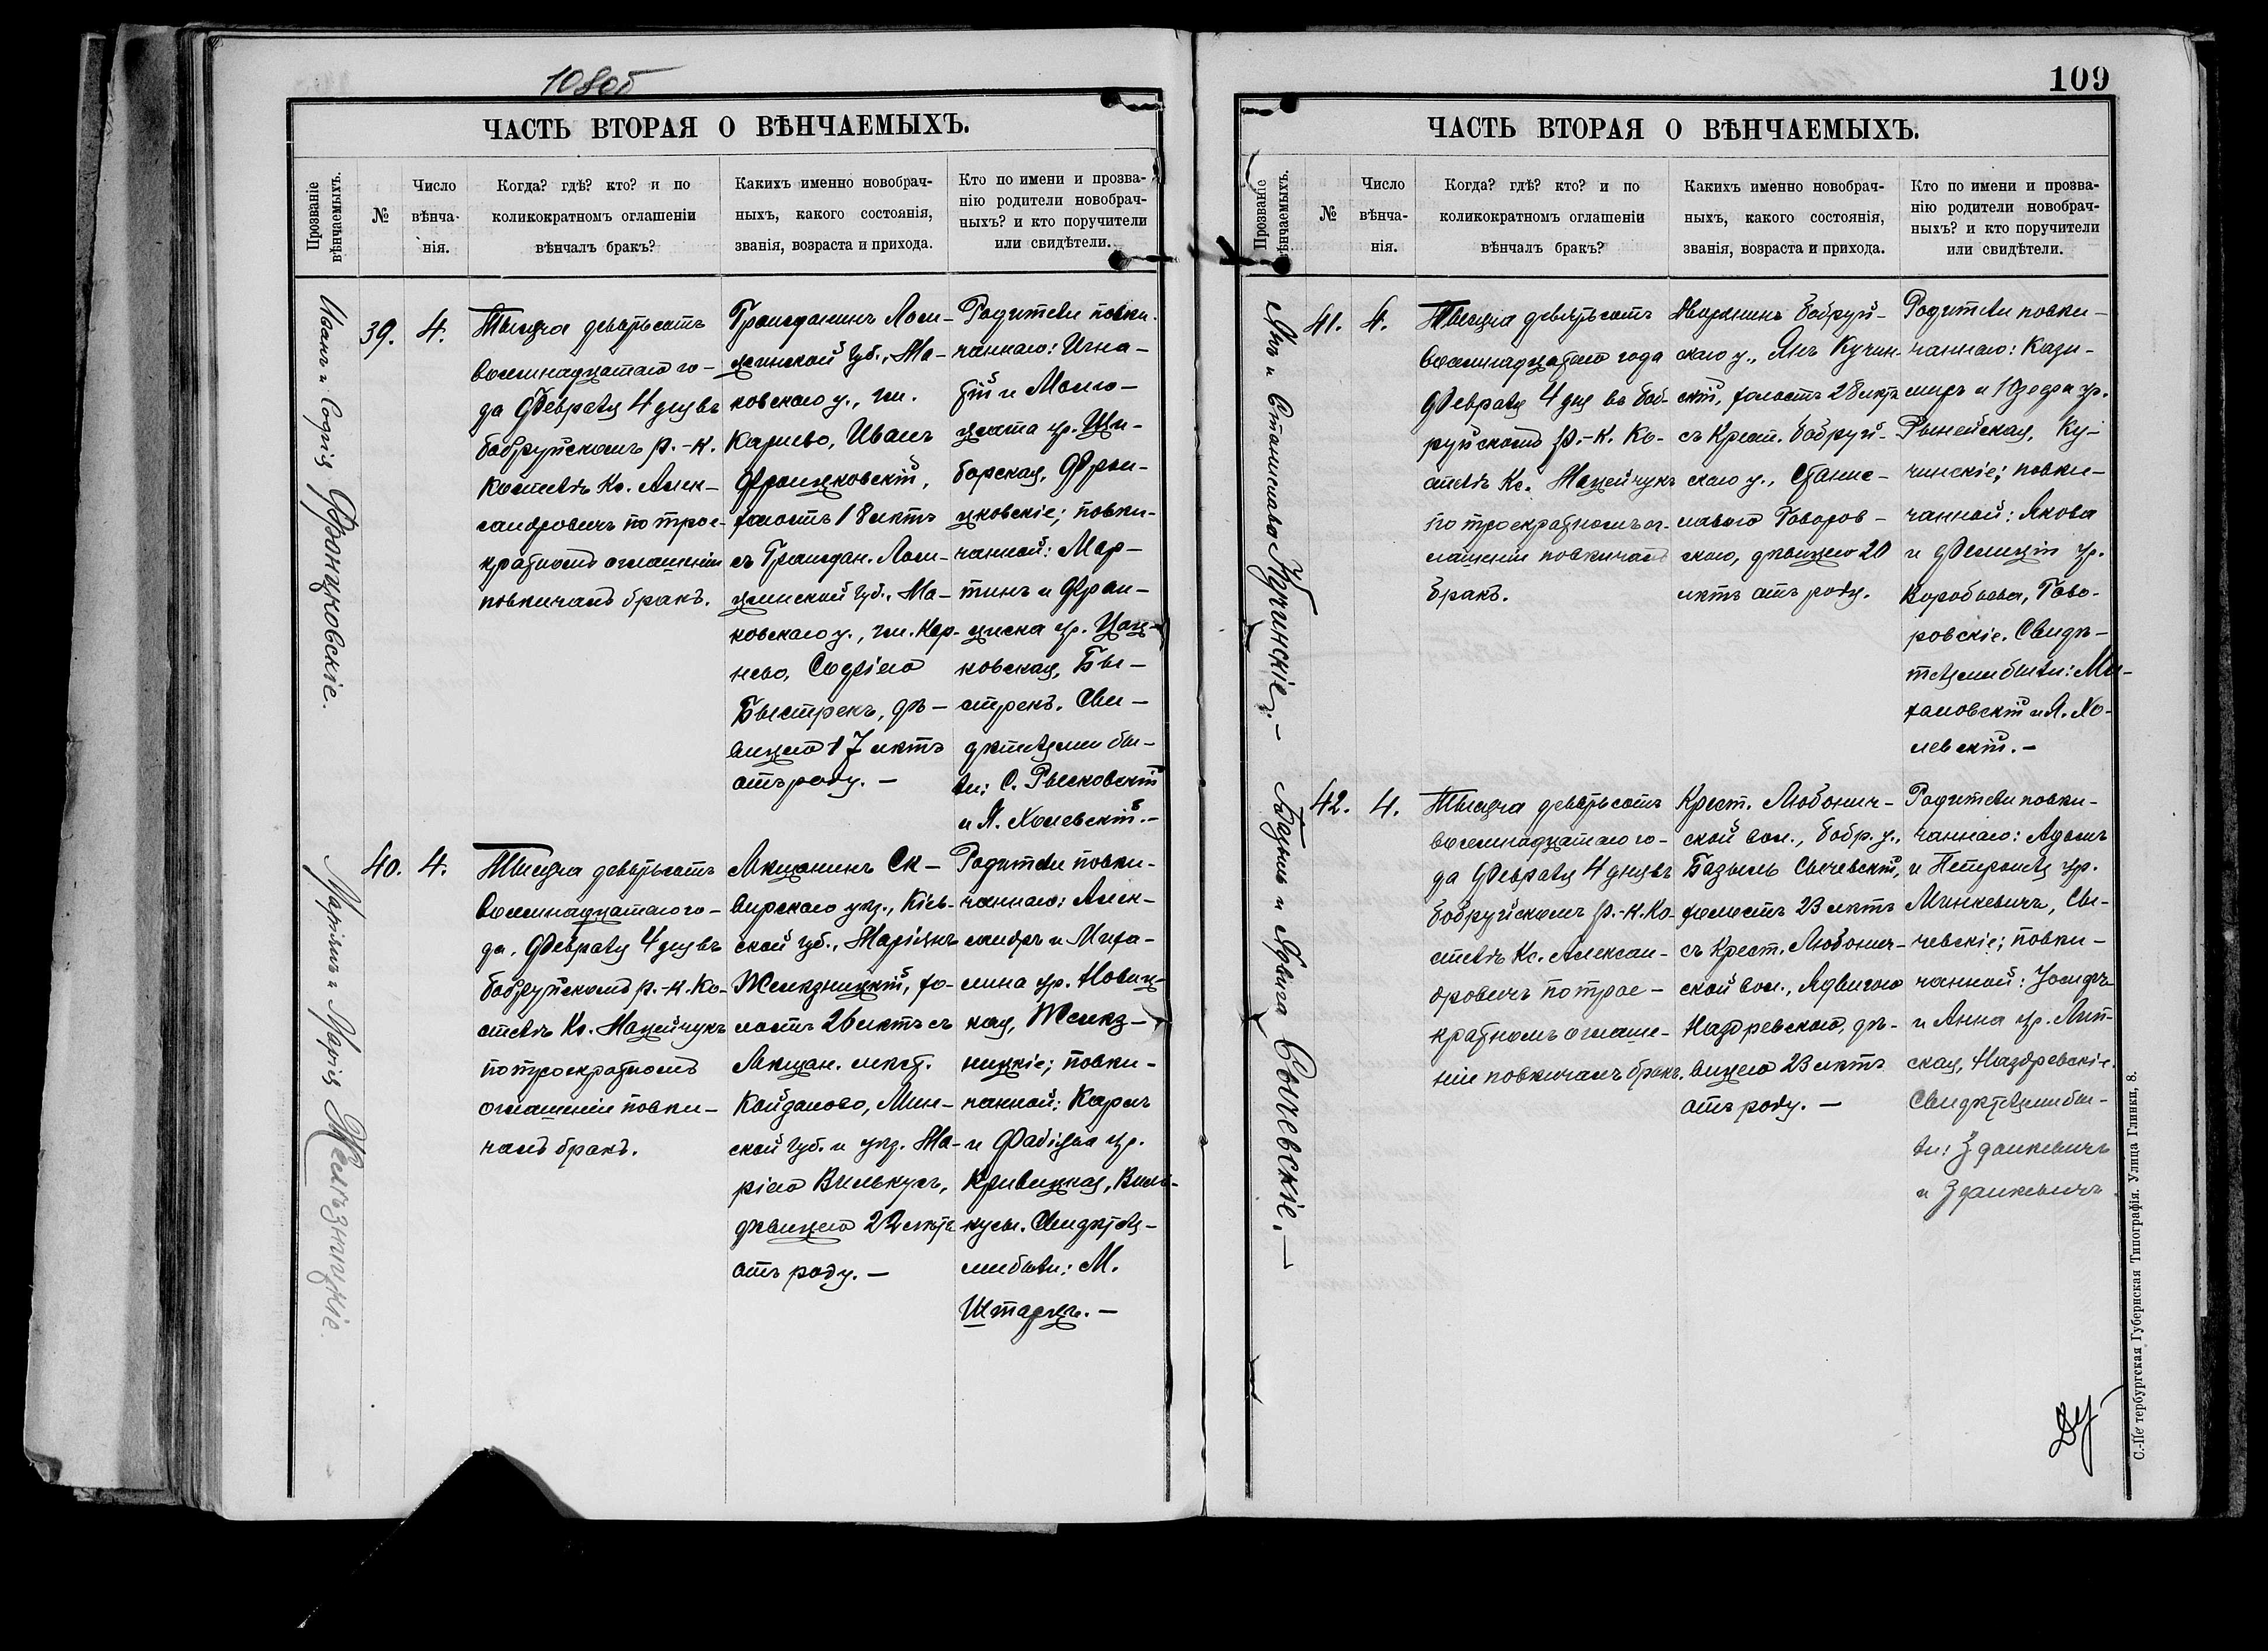 108об
ЧАСТЬ ВТОРАЯ О ВѢНЧАЕМЫХЪ.
Прозваніе
вѣнчаемыхъ.
№
Число
вѣнча-
нія.
Когда? гдѣ? кто? и по
коликократномъ оглашеніи
вѣнчалъ бракъ?
Какихъ именно новобрач-
ныхъ, какого состоянія,
званія, возраста и прихода.
Кто по имени и прозва-
нію родители новобрач-
ныхъ? и кто поручители
или свидѣтели.
Иванъ и Софія Францковскіе.
39.
4.
Тысяча девятьсотъ
восемнадцатаго го-
да Февраля 4 дня въ
бобруйскомъ р.-к.
Костелѣ Кс. Алек-
сандровичъ по трое-
кратномъ оглашеніи
повѣнчалъ бракъ.
Гражданинъ Лом-
жинской губ., Ма-
ковскаго у., гм.
Карнево, Иванъ
Францковскій,
холостъ 18 лѣтъ
съ Граждан. Лом-
жинской губ., Ма-
ковскаго у., гм. Кар-
нево, Софіею
Быстрекъ, дѣ-
вицею 17 лѣтъ
отъ роду. —
Родители повѣн-
чаннаго: Игна-
тій и Малго-
жата ур.
борская, Фран-
цковскіе; повѣн-
чанной: Мар-
тинъ и Фран-
циска ур. Цац-
ковская, Бы-
стрекъ. Сви-
дѣтелями бы-
ли: С. Рысковскій
и Я. Холевскій. —
Маріанъ и Марія Желѣзницкіе.
40.
4.
Тысяча девятьсотъ
восемнадцатаго го-
да, Февраля 4 дня въ
бобруйскомъ р.-к. Ко-
стелѣ Кс. Мацейчукъ
по троекратномъ
оглашеніи повѣн-
чалъ бракъ.
Мѣщанинъ Ск-
вирскаго уѣз., Кіев-
ской губ., Маріанъ
Желѣзницкій, хо-
лостъ 26 лѣтъ съ
Мѣщан. мѣст.
Койданово, Мин-
ской губ. и уѣз. Ма-
ріею Вилькусъ,
дѣвицею 22 лѣтъ
отъ роду. —
Родители повѣн-
чаннаго: Алек-
сандръ и Миха-
лина ур. Новиц-
кая, Желѣз-
ницкіе; повѣн-
чанной: Карлъ
и Фабіяна ур.
Кривицкая, Виль-
кусы. Свидѣтеля-
ми были: М.
Штарцъ. —
109
ЧАСТЬ ВТОРАЯ О ВѢНЧАЕМЫХЪ.
Прозваніе
вѣнчаемыхъ.
№
Число
вѣнча-
нія.
Когда? гдѣ? кто? и по
коликократномъ оглашеніи
вѣнчалъ бракъ?
Какихъ именно новобрач-
ныхъ, какого состоянія,
званія, возраста и прихода.
Кто по имени и прозва-
нію родители новобрач-
ныхъ? и кто поручители
или свидѣтели.
Янъ и Станислава Кучинскіе. —
41.
4.
Тысяча девятьсотъ
восемнадцатаго года
Февраля 4 дня въ боб-
руйскомъ р.-к. Ко-
стелѣ Кс. Мацейчукъ
по троекратномъ ог-
лашеніи повѣнчалъ
бракъ.
Дворянинъ бобруй-
скаго у., Янъ Кучин-
скій, холостъ 28 лѣтъ
съ Крест. бобруй-
скаго у., Станис-
лавою Говоров-
скою, дѣвицею 20
лѣтъ отъ роду.
Родители повѣн-
чаннаго: Кази-
миръ и Юзефа ур.
Рынейская, Ку-
чинскіе; повѣн-
чанной: Якова
и Фелиція ур.
Воробьева, Гово-
ровскіе. Свидѣ-
телями были: Ми-
халовскій и Я. Хо-
левскій. —
Базыль и Ядвига Сычевскіе. —
42.
4.
Тысяча девятьсотъ
восемнадцатаго го-
да Февраля 4 дня въ
бобруйскомъ р.-к. Ко-
стелѣ Кс. Алексан-
дровичъ по трое-
кратномъ оглаше-
ніи повѣнчалъ бракъ.
Крест. Любонич-
ской вол., бобр. у.,
Базыль Сычевскій,
холостъ 23 лѣтъ
съ Крест. Любонич-
ской вол., Ядвигою
Наздревскою, дѣ-
вицею 23 лѣтъ
отъ роду. —
Родители повѣн-
чаннаго: Адамъ
и Петронеля ур.
Минкевичъ, Сы-
чевскіе; повѣн-
чанной: Іосифъ
и Анна ур. Лип-
ская, Наздревскіе.
Свидѣтелями бы-
ли: Зданкевичъ
и Зданкевичъ.
С.-Петербургская Губернская Типографія. Улица Глинки, 8.